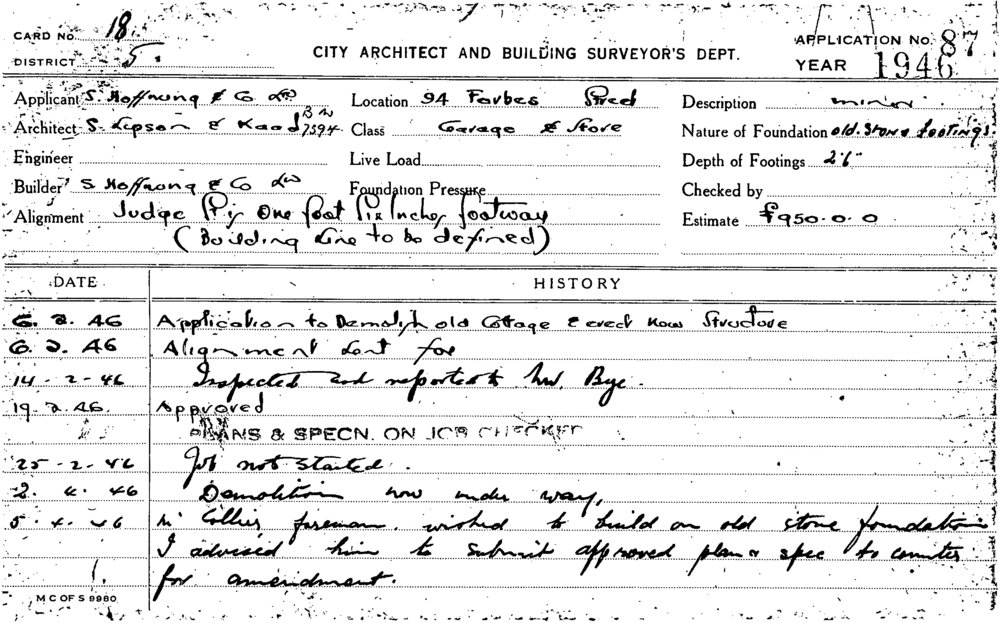 CARD No 18.
DISTRICT 5.
CITY ARCHITECT AND BUILDING SURVEYOR'S DEPT.
APPLICATION No. 87
YEAR 1946
Applicant S. Hoffnung & Co Ld
Location 94 Forbes Street
Description minor.
Architect S. Lipson & Kaad BW 7594.
Class Garage & Store
Nature of Foundation old. stone footings.
Engineer
Live Load
Depth of Footings 2'6"
Builder S Hoffnung & Co Ld
Foundation Pressure
Checked by
Alignment Judge One foot Six Inches footway
Estimate £950.0.0
(Building Line to be defined)
DATE HISTORY
6. 2. 46 Application to Demolish old Cottage & erect New Structure
6. 2. 46 Alignment sent for
14-2-46 Inspected and reported to Mr. Bye.
19.2.46. Approved
PLANS & SPECN. ON JOB CHECKED
25-2-46 Job not started.
2. 4. 46 Demolition now under way,
5.4.46 Mr Collier foreman. wished to build on old stone foundations
I advised him to submit approved plan & spec to counter
for amendment.
M C OF S 9980